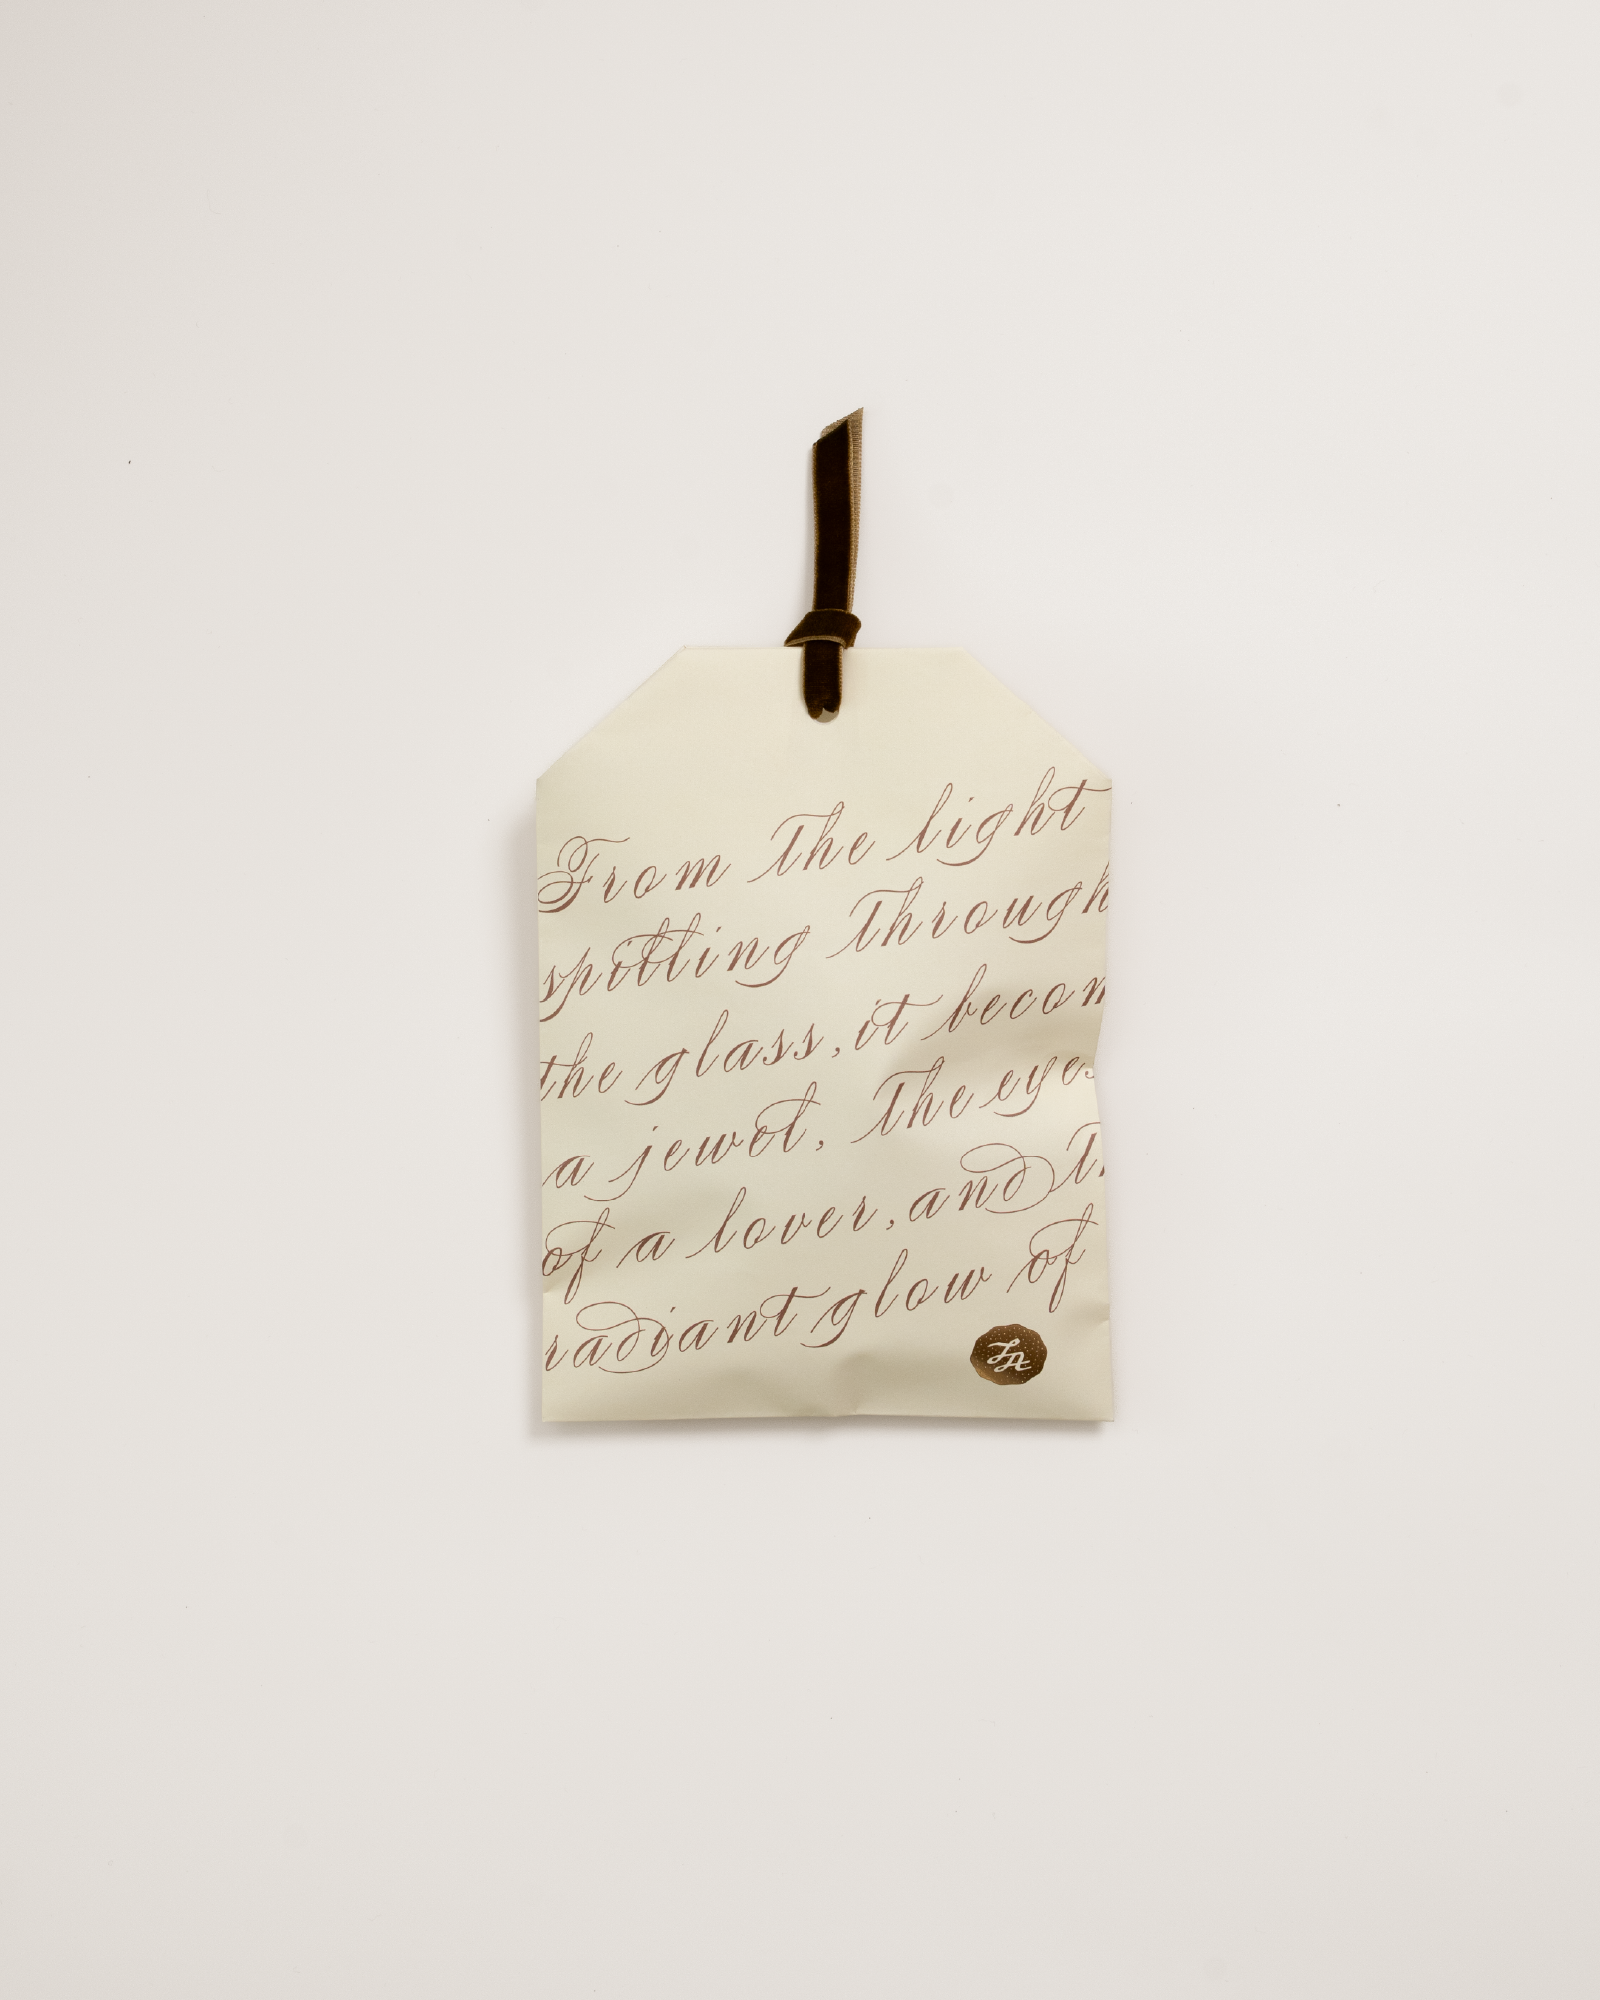 From the light
spitting through
the glass, it becom
a jewel, the eyes
of a lover, and th
radiant glow of
LA